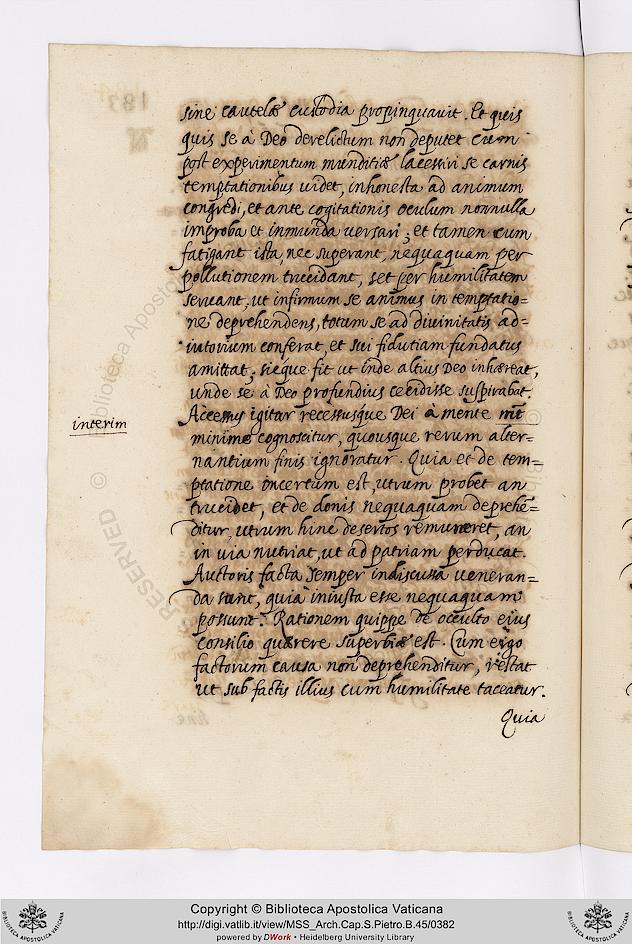 sine cautelæ custodia propinquavit. Et quis
quis se à Deo derelictum non deputet cum
post experimentum munditiæ lacessiri se carnis
temptationibus videt, inhonesta ad animum
congredi, et ante cogitationis oculum nonnulla
improba et inmunda versari; et tamen cum
fatigant ista, nec superant, nequaquam per
pollutionem trucidant, set per humilitatem
servant, ut infirmum se animus in temptatio=
ne deprehendens, totum se ad divinitatis ad=
iutorium conferat, et sui fidutiam funditus
amittat; sicque fit ut inde altius Deo inhæreat,
unde se à Deo profundius cecidisse suspirabat.
Accessus igitur recessusque Dei à mente
interim
minime cognoscitur, quousque rerum alter=
nantium finis ignoratur. Quia et de tem=
ptatione incertum est, utrum probet an
trucidet, et de donis nequaquam deprehē=
ditur, utrum hinc desertos remuneret, an
in via nutriat, ut ad patriam perducat.
Auctoris facta semper indiscussa veneran=
da sunt, quia iniusta esse nequaquam
possunt. Rationem quippe de occulto eius
consilio quærere superbiæ est. Cum ergo
factorum causa non deprehenditur, restat
ut sub factis illius cum humilitate taceatur.
Quia
Copyright © Biblioteca Apostolica Vaticana
http://digi.vatlib.it/view/MSS_Arch.Cap.S.Pietro.B.45/0382
powered by DWork • Heidelberg University Library